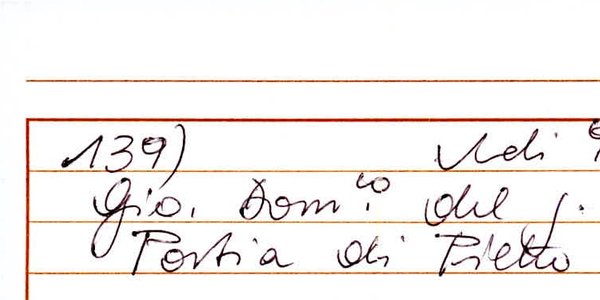 139) Adi
Gio. Dom.co del f.
Portia di Pietto